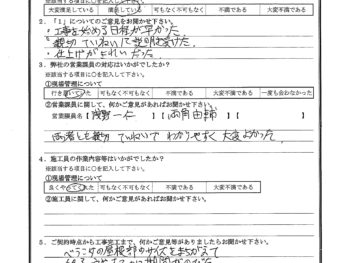 ※該当する項目に○を記入して下さい
大変満足している 満足している 可もなく不可もなく 不満である 大変不満である
2．「1」についてのご意見をお聞かせ下さい。
・工事を始める日程が早かった
・親切 ていねいに説明を受けた。
・仕上げがきれいだった
3．弊社の営業課員の対応はいかがでしたか？
※該当する項目に○を記入して下さい
①現場管理について
行き届いていた 可もなく不可もなく 不満である 大変不満である 一度も会わなかった
②営業課員に関して、何かご意見があればお聞かせ下さい。
営業課員名【 】【 】
両者とも親切 ていねいで わかりやすく 大変よかった。
4．施工員の作業内容等はいかがでしたか？
※該当する項目に○を記入して下さい
①現場管理について
良くやっていた 可もなく不可もなく 不満である 大変不満である
②施工員に関して、何かご意見があればお聞かせ下さい。
5．ご契約時点から工事完工まで、何かご意見等がありましたらお聞かせ下さい。
ベランダの屋根部のサイズをまちがえて